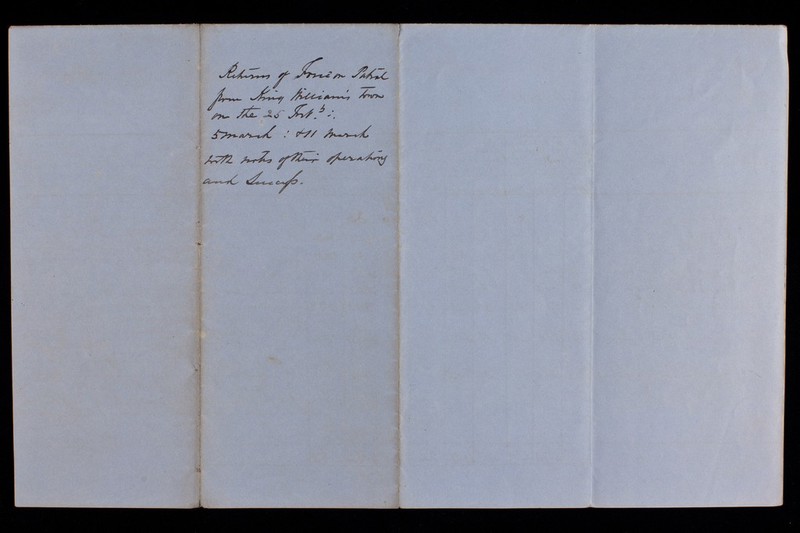 Returns of Force on Patrol
from King William's Town
on the 25 Feb.
5 march : & 11 March
with notes of their operations
and Success.